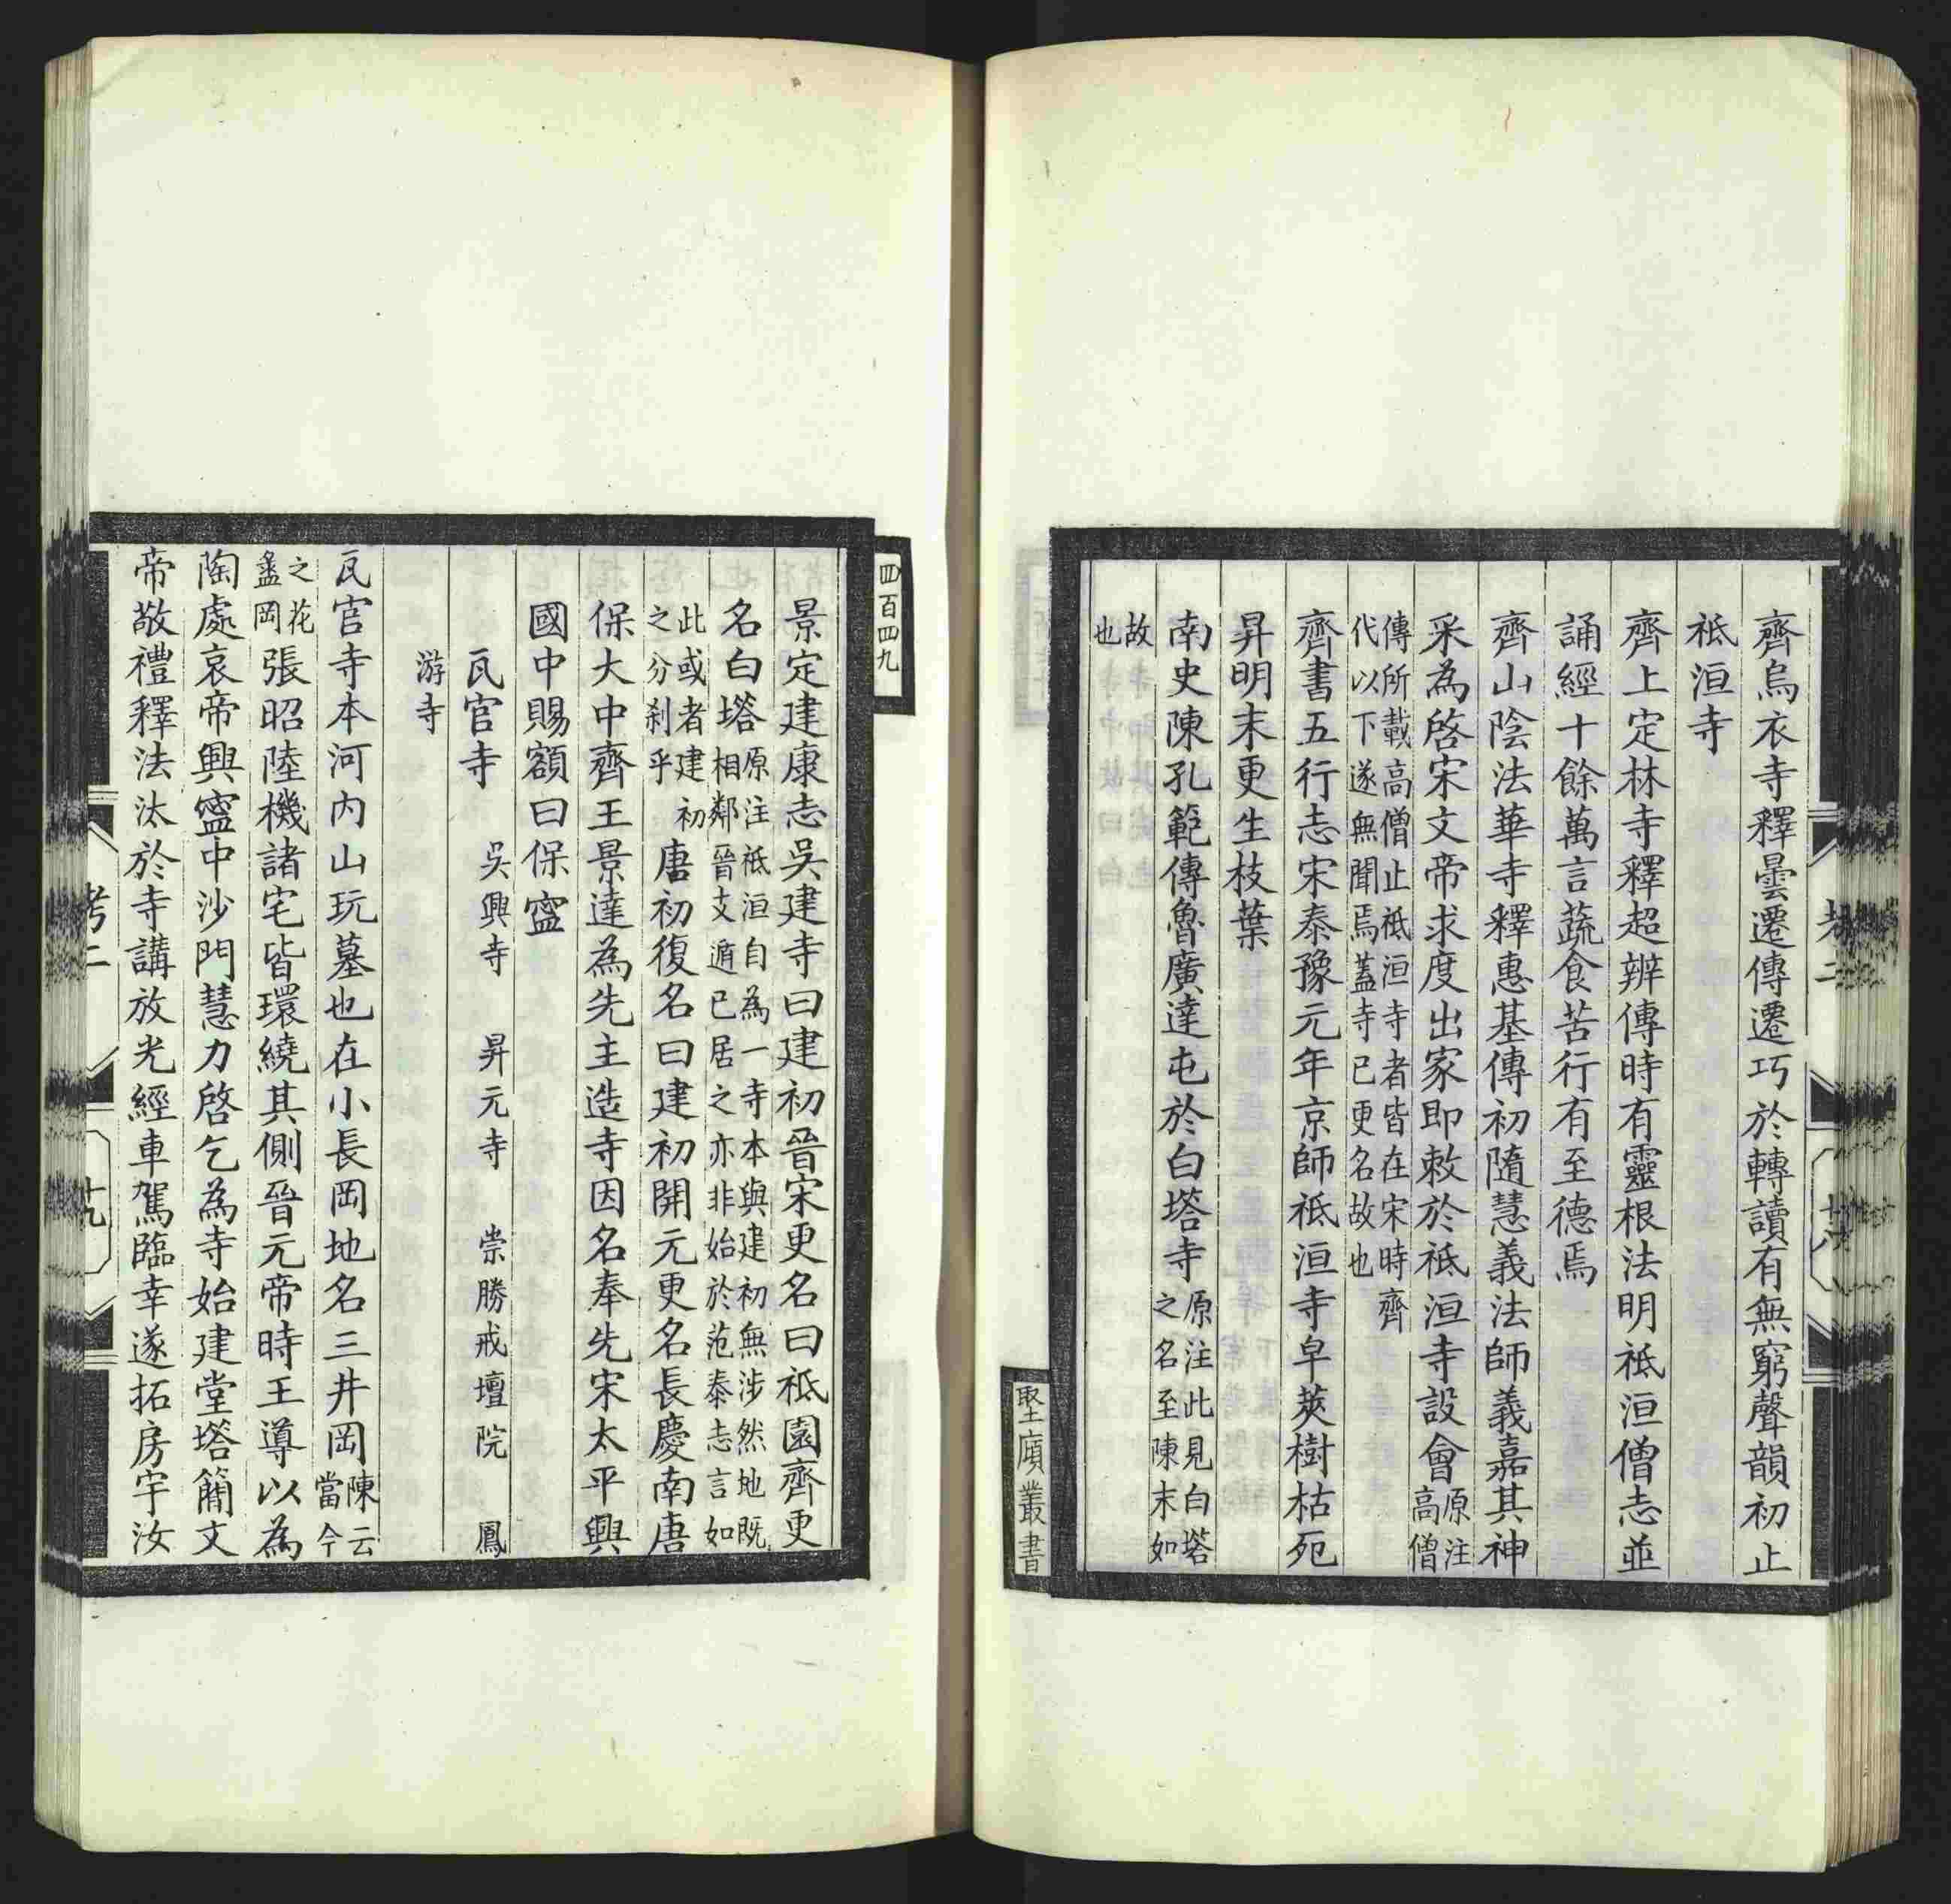 齊烏衣寺釋曇遷傳遷巧於轉讀有無窮聲韻初止
祇洹寺
齊上定林寺釋超辨傳時有靈根法明祇洹僧志並
誦經十餘萬言蔬食苦行有至德焉
齊山陰法華寺釋惠基傳初隨慧義法師義嘉其神
采為啓宋文帝求度出家即敕於祇洹寺設會原注高僧
傳所載高僧止祇洹寺者皆在宋時齊代以下遂無聞焉蓋寺已更名故也
齊書五行志宋泰豫元年京師祇洹寺皁莢樹枯死
昇明末更生枝葉
南史陳孔範傳魯廣達屯於白塔寺原注此見白塔之名至陳末如
故也
堅庼叢書
考二
十八
四百四九
景定建康志吳建寺曰建初晉宋更名曰祇園齊更
名白塔原注祇洹自為一寺本與建初無涉然地既相鄰晉支遁已居之亦非始於范泰志言如
此或者建初之分刹乎唐初復名曰建初開元更名長慶南唐
保大中齊王景達為先主造寺因名奉先宋太平興
國中賜額曰保寧
瓦官寺 吳興寺 昇元寺 崇勝戒壇院 鳳
游寺
瓦官寺本河内山玩墓也在小長岡地名三井岡陳云當今
之花盝岡張昭陸機諸宅皆環繞其側晉元帝時王導以為
陶處哀帝興寧中沙門慧力啓乞為寺始建堂塔簡文
帝敬禮釋法汰於寺講放光經車駕臨幸遂拓房宇汝
考二
十九